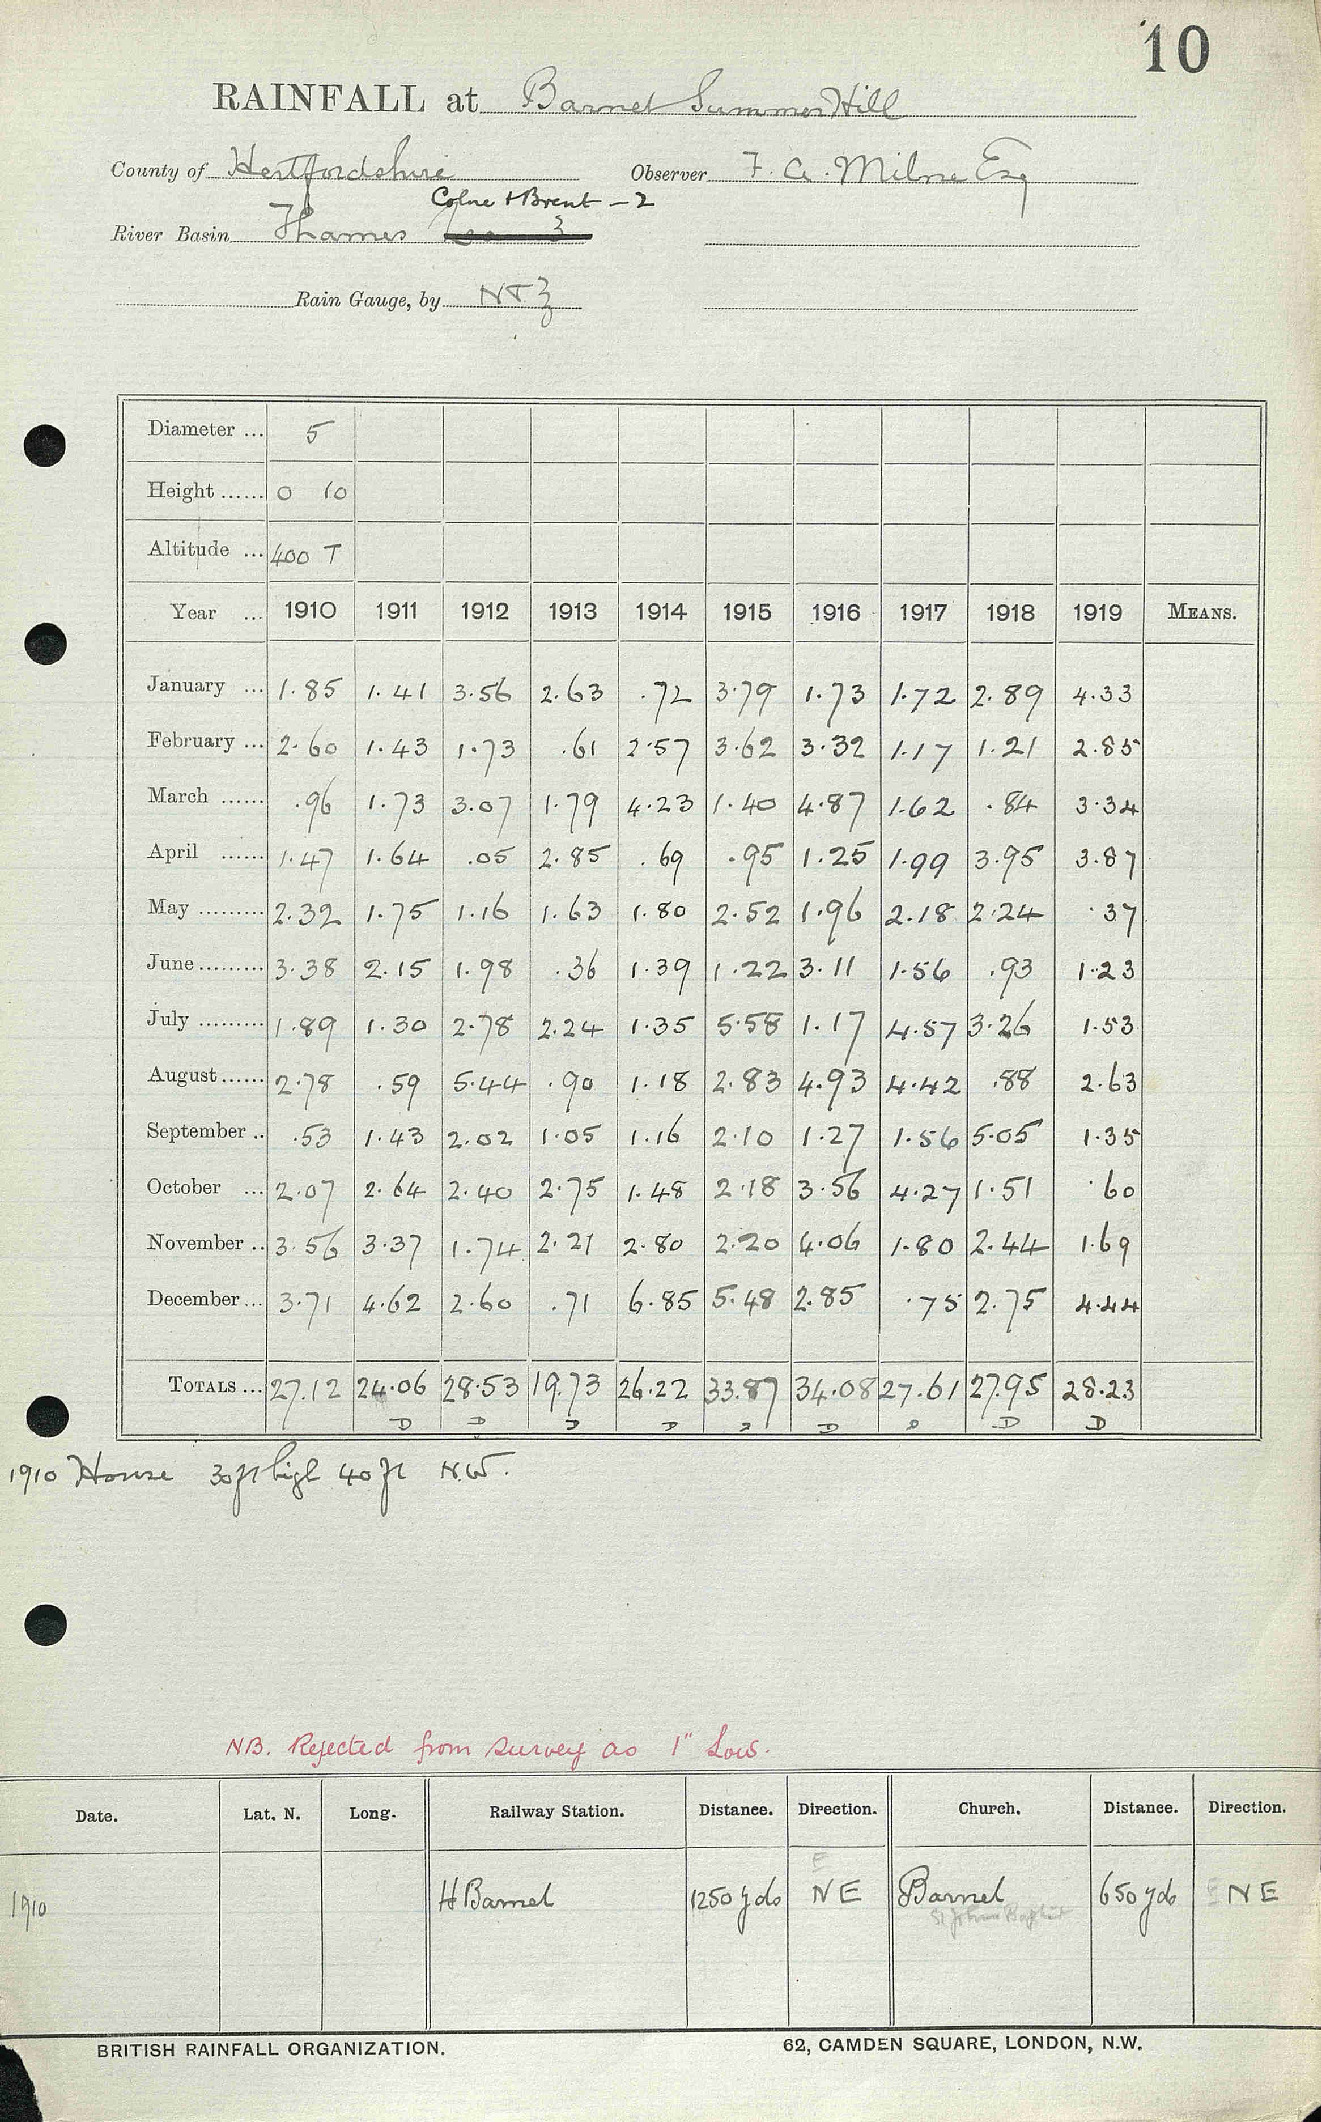 10
RAINFALL at Barnet Summer Hill
County of Hertfordshire Observer F. A. Milne Esq
Colne & Brent - 2
River Basin Thames 3
Rain Gauge, by NTZ
Diameter ... 5
Height ...... 0 10
Altitude ... 400 T
Year ... 1910 1911 1912 1913 1914 1915 1916 1917 1918 1919 MEANS.
January ... 1.85 1.41 3.56 2.63 .72 3.79 1.73 1.72 2.89 4.33
February ... 2.60 1.43 1.73 .61 2.57 3.62 3.32 1.17 1.21 2.85
March ...... .96 1.73 3.07 1.79 4.23 1.40 4.87 1.62 .84 3.34
April ...... 1.47 1.64 .05 2.85 .69 .95 1.25 1.99 3.95 3.87
May ......... 2.32 1.75 1.16 1.63 1.80 2.52 1.96 2.18 2.24 .37
June ......... 3.38 2.15 1.98 .36 1.39 1.22 3.11 1.56 .93 1.23
July ......... 1.89 1.30 2.78 2.24 1.35 5.58 1.17 4.57 3.26 1.53
August ...... 2.78 .59 5.44 .90 1.18 2.83 4.93 4.42 .88 2.63
September .. .53 1.43 2.02 1.05 1.16 2.10 1.27 1.56 5.05 1.35
October ... 2.07 2.64 2.40 2.75 1.48 2.18 3.56 4.27 1.51 .60
November .. 3.56 3.37 1.74 2.21 2.80 2.20 4.06 1.80 2.44 1.69
December ... 3.71 4.62 2.60 .71 6.85 5.48 2.85 .75 2.75 4.44
TOTALS ... 27.12 24.06 28.53 19.73 26.22 33.87 34.08 27.61 27.95 28.23
D D D D D D D D D
1910 House 30ft high 40 ft N.W.
NB. Rejected from survey as 1" Low.
Date. Lat. N. Long. Railway Station. Distance. Direction. Church. Distance. Direction.
E
1910 H Barnet 1250 yds NE Barnet 650 yds E NE
St John Baptist
BRITISH RAINFALL ORGANIZATION. 62, CAMDEN SQUARE, LONDON, N.W.